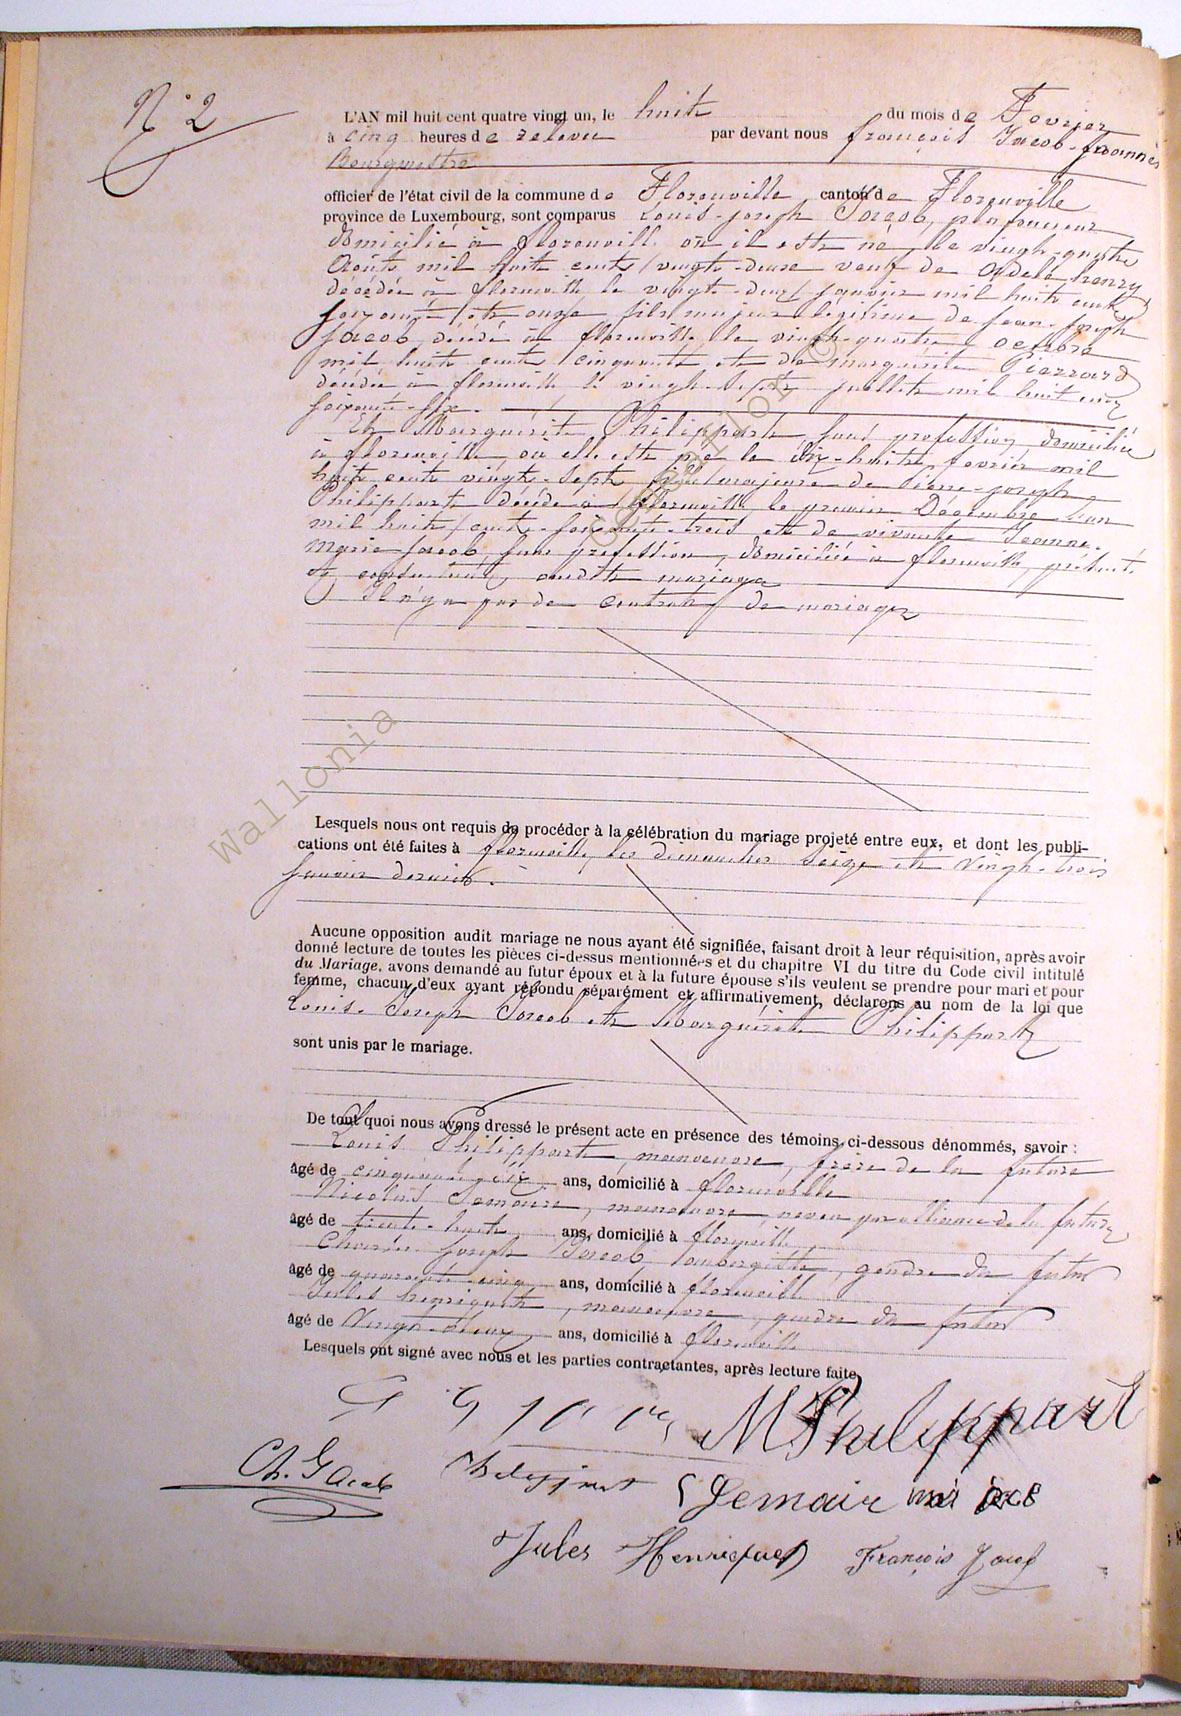 N° 2
L'AN mil huit cent quatre vingt un, le huit du mois de Fevrier
à cinq heures de relevée par devant nous françois Jacob-Jeannès
Bourgmestre
officier de l'état civil de la commune de Florenville, canton de Florenville
province de Luxembourg, sont comparus Louis-Joseph Jacob,
domicilié à florenville où il est né le vingt-quatre
Août mil huit cent vingt-deux veuf de Adèle henry
décédée à florenville le vingt-deux janvier mil huit cent
soixante et onze, fils majeur légitime de jean-joseph
jacob, décédé à florenville le vingt-quatre octobre
mil huit cent cinquante et de marguerite Pierrard
décédée à florenville le vingt-sept juillet mil huit cent
soixante-six.
Et Marguerite Philippart, sans profession, domiciliée
à florenville, où elle est née le dix-huit fevrier mil
huit cent vingt-sept fille majeure de Pierre-joseph
Philippart décédé à florenville le premier Décembre an
mil huit cent soixante-trois et de vivante Jeanne-
Marie Jacob sans profession, domiciliée à florenville, présente
et consentant, audit mariage
Il n'y a pas de contrat de mariage
Lesquels nous ont requis de procéder à la célébration du mariage projeté entre eux, et dont les publi-
cations ont été faites à florenville, les dimanches seize et vingt-trois
janvier dernier.
Aucune opposition audit mariage ne nous ayant été signifiée, faisant droit à leur réquisition, après avoir
donné lecture de toutes les pièces ci-dessus mentionnées et du chapitre VI du titre du Code civil intitulé
du Mariage, avons demandé au futur époux et à la future épouse s'ils veulent se prendre pour mari et pour
femme, chacun d'eux ayant répondu séparément et affirmativement, déclarons au nom de la loi que
Louis-Joseph Jacob et Marguerite Philippart
sont unis par le mariage.
De tout quoi nous avons dressé le présent acte en présence des témoins ci-dessous dénommés, savoir :
Louis Philippart, manoeuvre, frère de la future
âgé de cinquante six ans, domicilié à florenville
Nicolas Lemaire, manoeuvre, neveu par alliance de la future
âgé de trente-huit ans, domicilié à florenville
Charles-Joseph Jacob, aubergiste, gendre du futur
âgé de quarante cinq ans, domicilié à florenville
Jules henriquet, manoeuvre, gendre du futur
âgé de Vingt-deux, ans, domicilié à florenville
Lesquels ont signé avec nous et les parties contractantes, après lecture faite
M Philippart
Ch. Jacob
Lemair
Jules Henriquet François Jacob
Wallonia